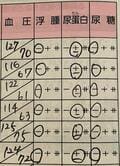 血圧 浮腫 尿蛋白 尿糖
127/70 − + ⧺ − ± + ⧺ − + ⧺
116/67 − + ⧺ − ± + ⧺ − + ⧺
122/61 − + ⧺ − ± + ⧺ − + ⧺
114/63 − + ⧺ − ± + ⧺ − + ⧺
125/75 − + ⧺ − ± + ⧺ − + ⧺
124/72 − + ⧺ − ± + ⧺ − + ⧺